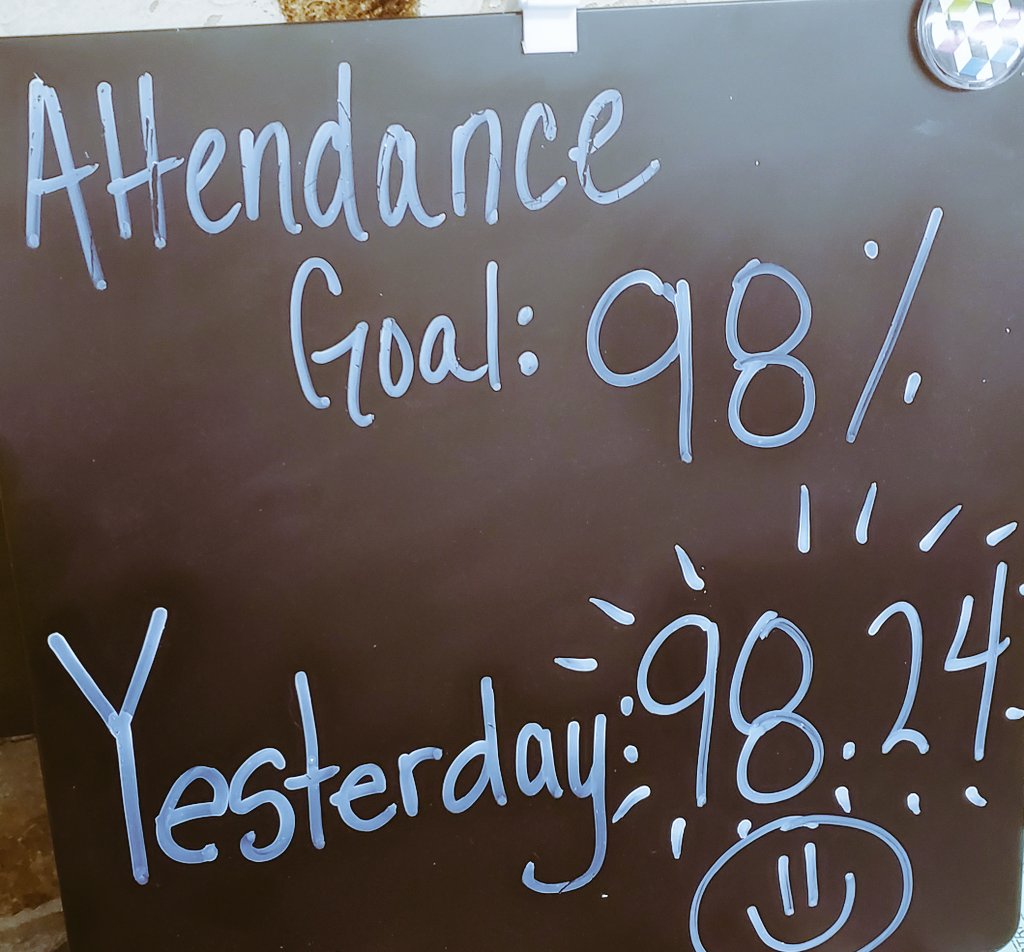 Attendance
Goal: 98%
Yesterday: 98.24